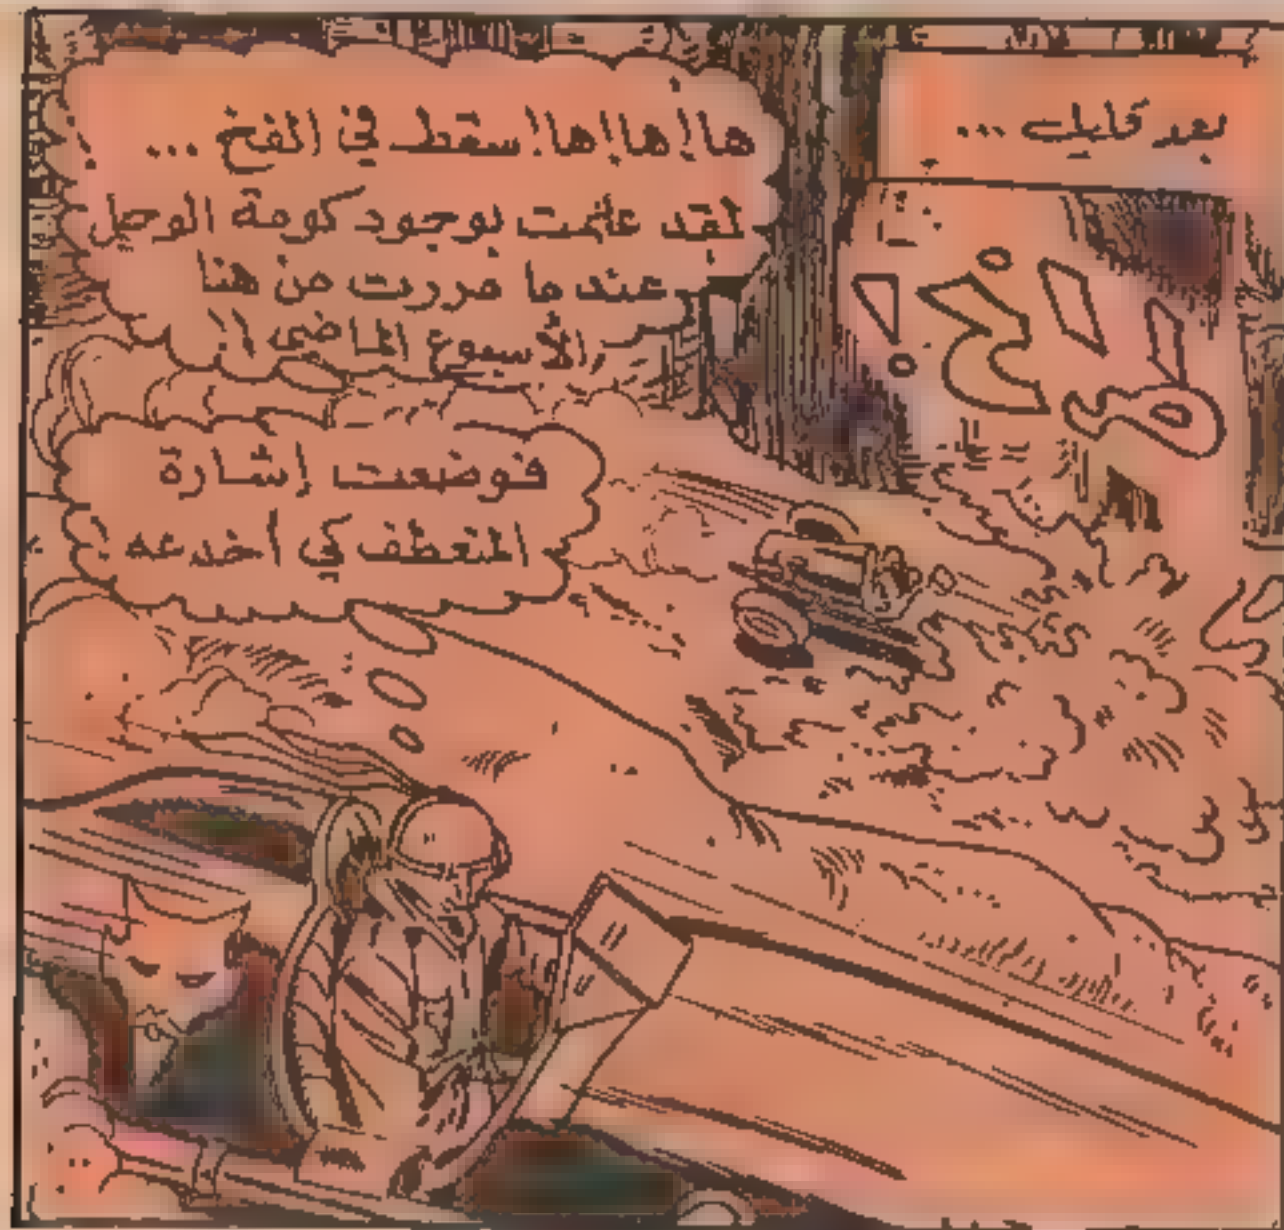 بعد قليل ...
ها! ها! ها! سقط في الفخ ...
لقد علمت بوجود كومة الوحل
عندما مررت من هنا
الأسبوع الماضي !!
فوضعت إشارة
المنعطف كي أخدعه !